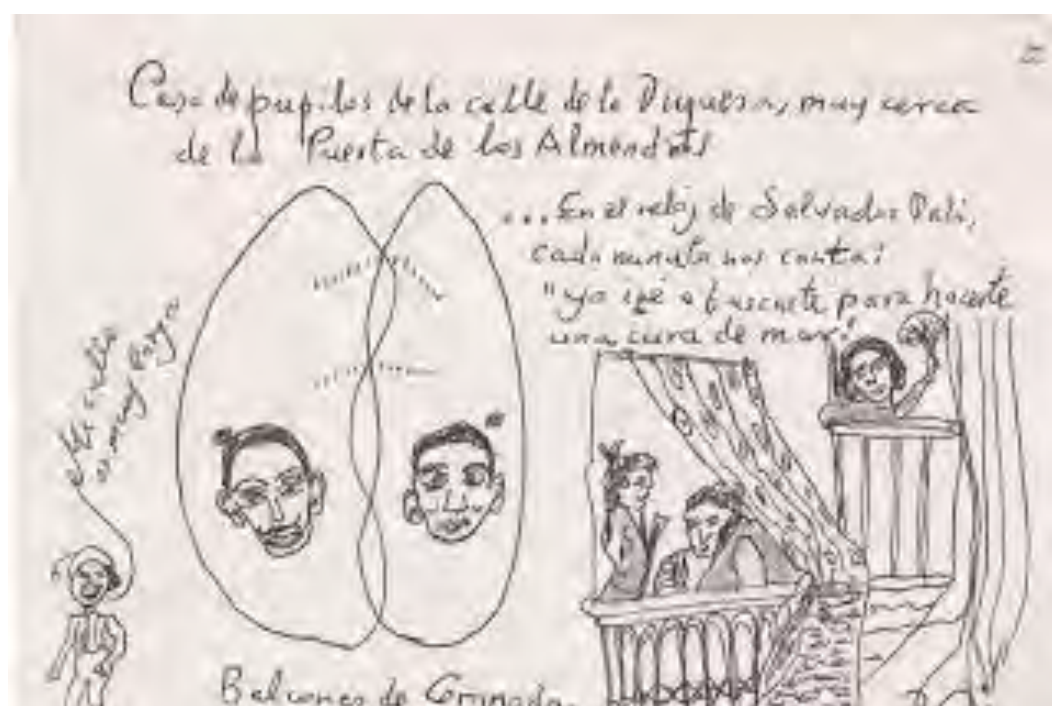 Casa de pupilos de la calle de la Duquesa, muy cerca
de la Puerta de los Almendros
... En el reloj de Salvador Dalí,
cada minuto nos canta:
"yo iré a buscarte para hacerte
una cura de mar"
es muy largo
Balcones de Granada.